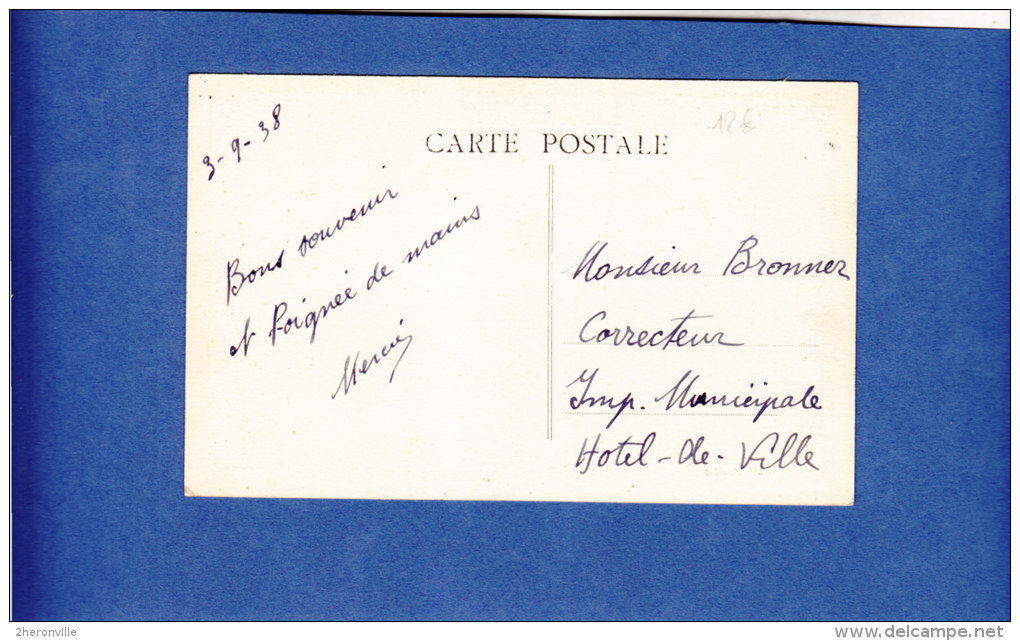 3-9-38
CARTE POSTALE
12€
Bons souvenir
et Poignée de mains
Monsieur Bronner
Correcteur
Imp. Municipale
Hotel-de-Ville
2heronville
www.delcampe.net